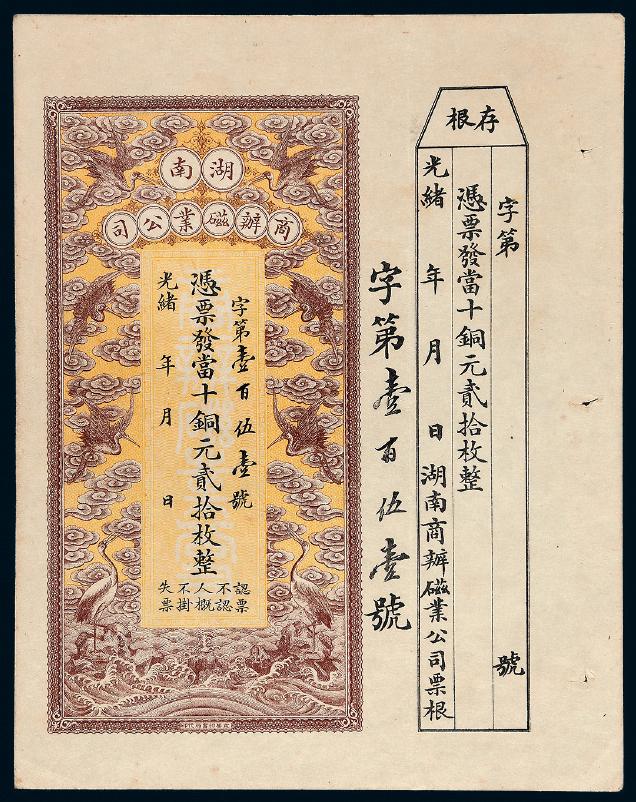 存根
字第　號
憑票發當十銅元貳拾枚整
光緒　年　月　日湖南商辦磁業公司票根
字第壹百伍壹號
湖南
商辦磁業公司
字第壹百伍壹號
憑票發當十銅元貳拾枚整
光緒　年　月　日
認票
不認
人概
不掛
失票